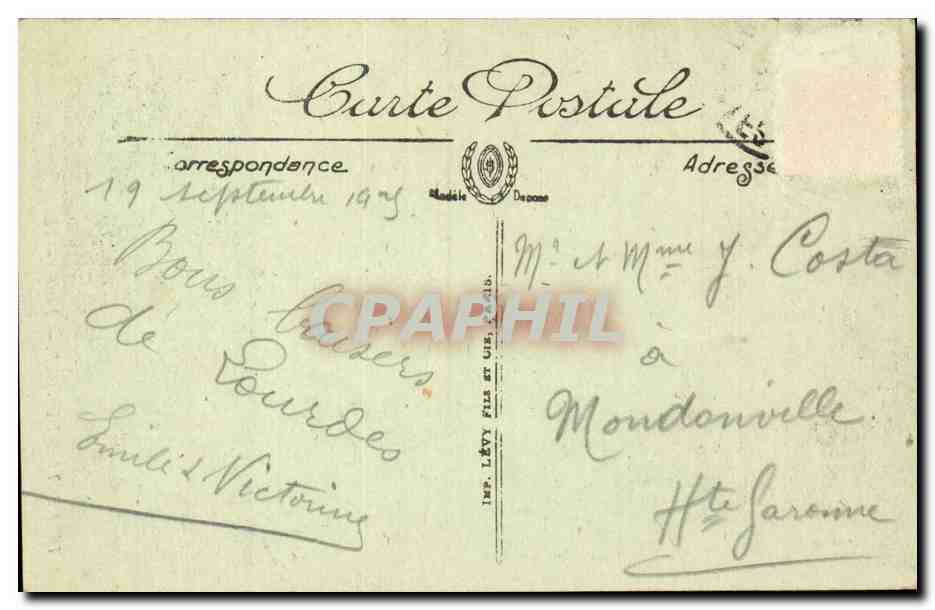 Carte Postale
Correspondance
Adresse
Modèle Déposé
19 septembre 1925
Bons baisers
de Lourdes
Emile & Victorine
CPAPHIL
IMP. LÉVY FILS ET CIE, PARIS.
Mr et Mme J. Costa
à
Mondonville
Hte Garonne